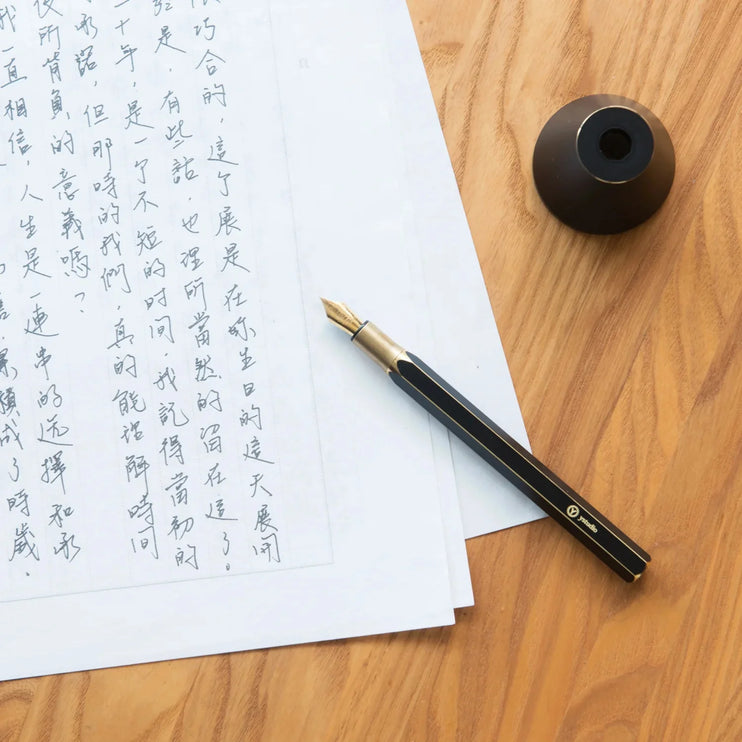 巧合的，這个展是在妳生日的這天展開
是，有些話，也理所當然的留在這了。
十年，是一个不短的時間，我記得當初的
承諾，但那時的我們，真的能理解時間
所背負的意義嗎？
我一直相信，人生是一連串的選擇和承
累積成了時歲．
ystudio